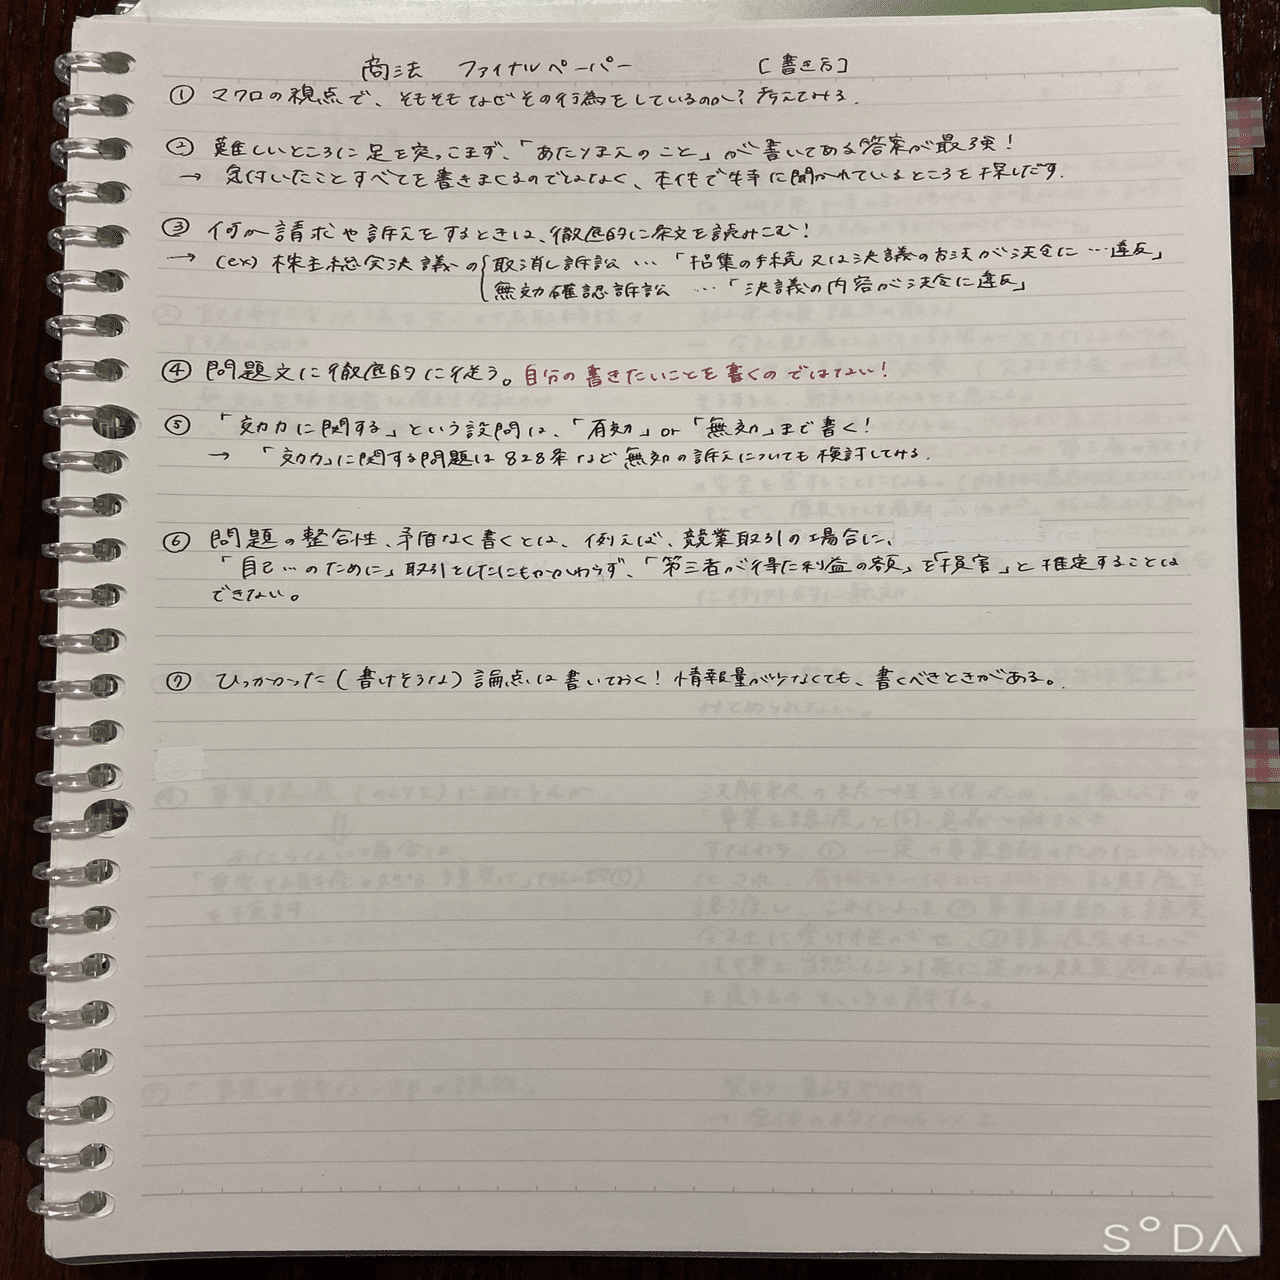 商法 ファイナルペーパー [書き方]
① マクロの視点で、そもそもなぜその行為をしているのか?考えてみる.
② 難しいところに足を突っこまず、「あたりまえのこと」が書いてある答案が最強!
→ 気付いたことすべてを書きまくるのではなく、本件で特に聞かれているところを探しだす.
③ 何か請求や訴えをするときは、徹底的に条文を読みこむ!
→ (ex) 株主総会決議の 取消し訴訟 … 「招集の手続又は決議の方法が法令に…違反」
無効確認訴訟 … 「決議の内容が法令に違反」
④ 問題文に徹底的に従う。自分の書きたいことを書くのではない!
⑤ 「効力に関する」という設問は、「有効」or「無効」まで書く!
→ 「効力」に関する問題は828条など無効の訴えについても検討してみる.
⑥ 問題の整合性、矛盾なく書くとは、例えば、競業取引の場合に、
「自己…のために」取引をしたにもかかわらず、「第三者が得た利益の額」を「損害」と推定することは
できない。
⑦ ひっかかった(書けそうな)論点は書いておく!情報量が少なくても、書くべきときがある。
SODA